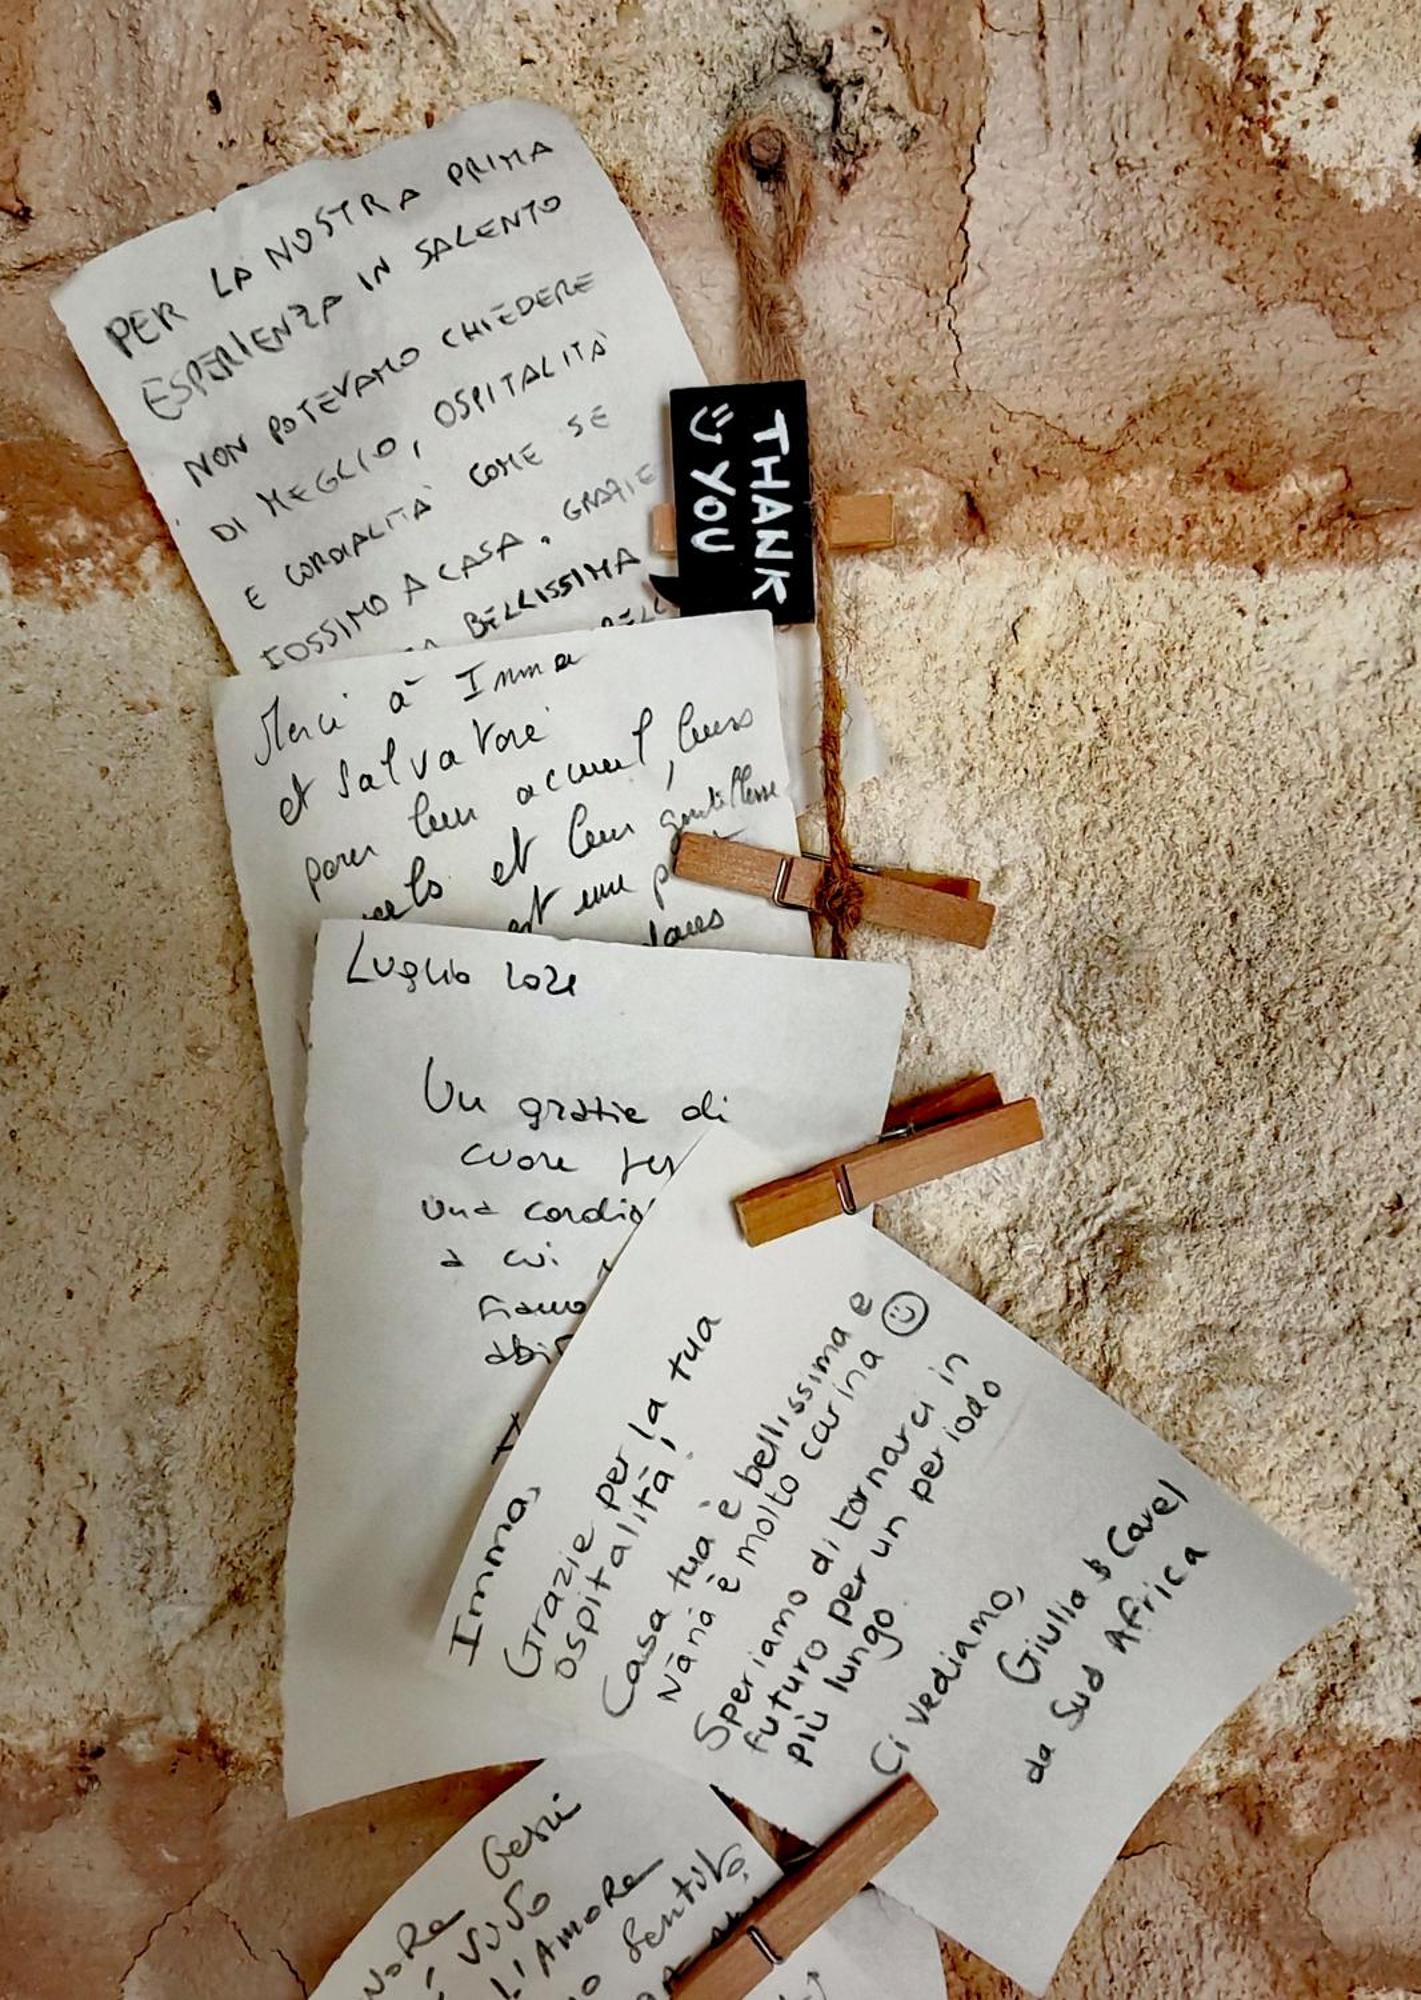 PER LA NOSTRA PRIMA
ESPERIENZA IN SALENTO
NON POTEVAMO CHIEDERE
DI MEGLIO, OSPITALITÀ
E CORDIALITÀ COME SE
FOSSIMO A CASA. GRAZIE
BELLISSIMA
THANK
YOU
Merci à Imma
et Salvatore
pour leur accueil, leurs
et leur gentillesse
est une
dans
Luglio 2021
Un grazie di
cuore per
una
a cui
siamo
Imma,
Grazie per la tua
ospitalità!
Casa tua è bellissima e
Nanà è molto carina
Speriamo di tornarci in
futuro per un periodo
più lungo.
Ci vediamo,
Giulia & Cavel
da Sud Africa
Gesù
L'AMORE
Sentito